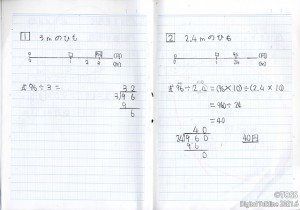 1 3mのひも
0 □ (円)
0 1 2 3 (m)
式 96÷3=
32
3)96
9
6
2 2.4mのひも
0 □ 96 (円)
0 1 (m)
式 96÷2.4=(96×10)÷(2.4×10)
=960÷24
=40
40
24)960
96
0
40円
©TOSS
Digital TalkLine 2021.6